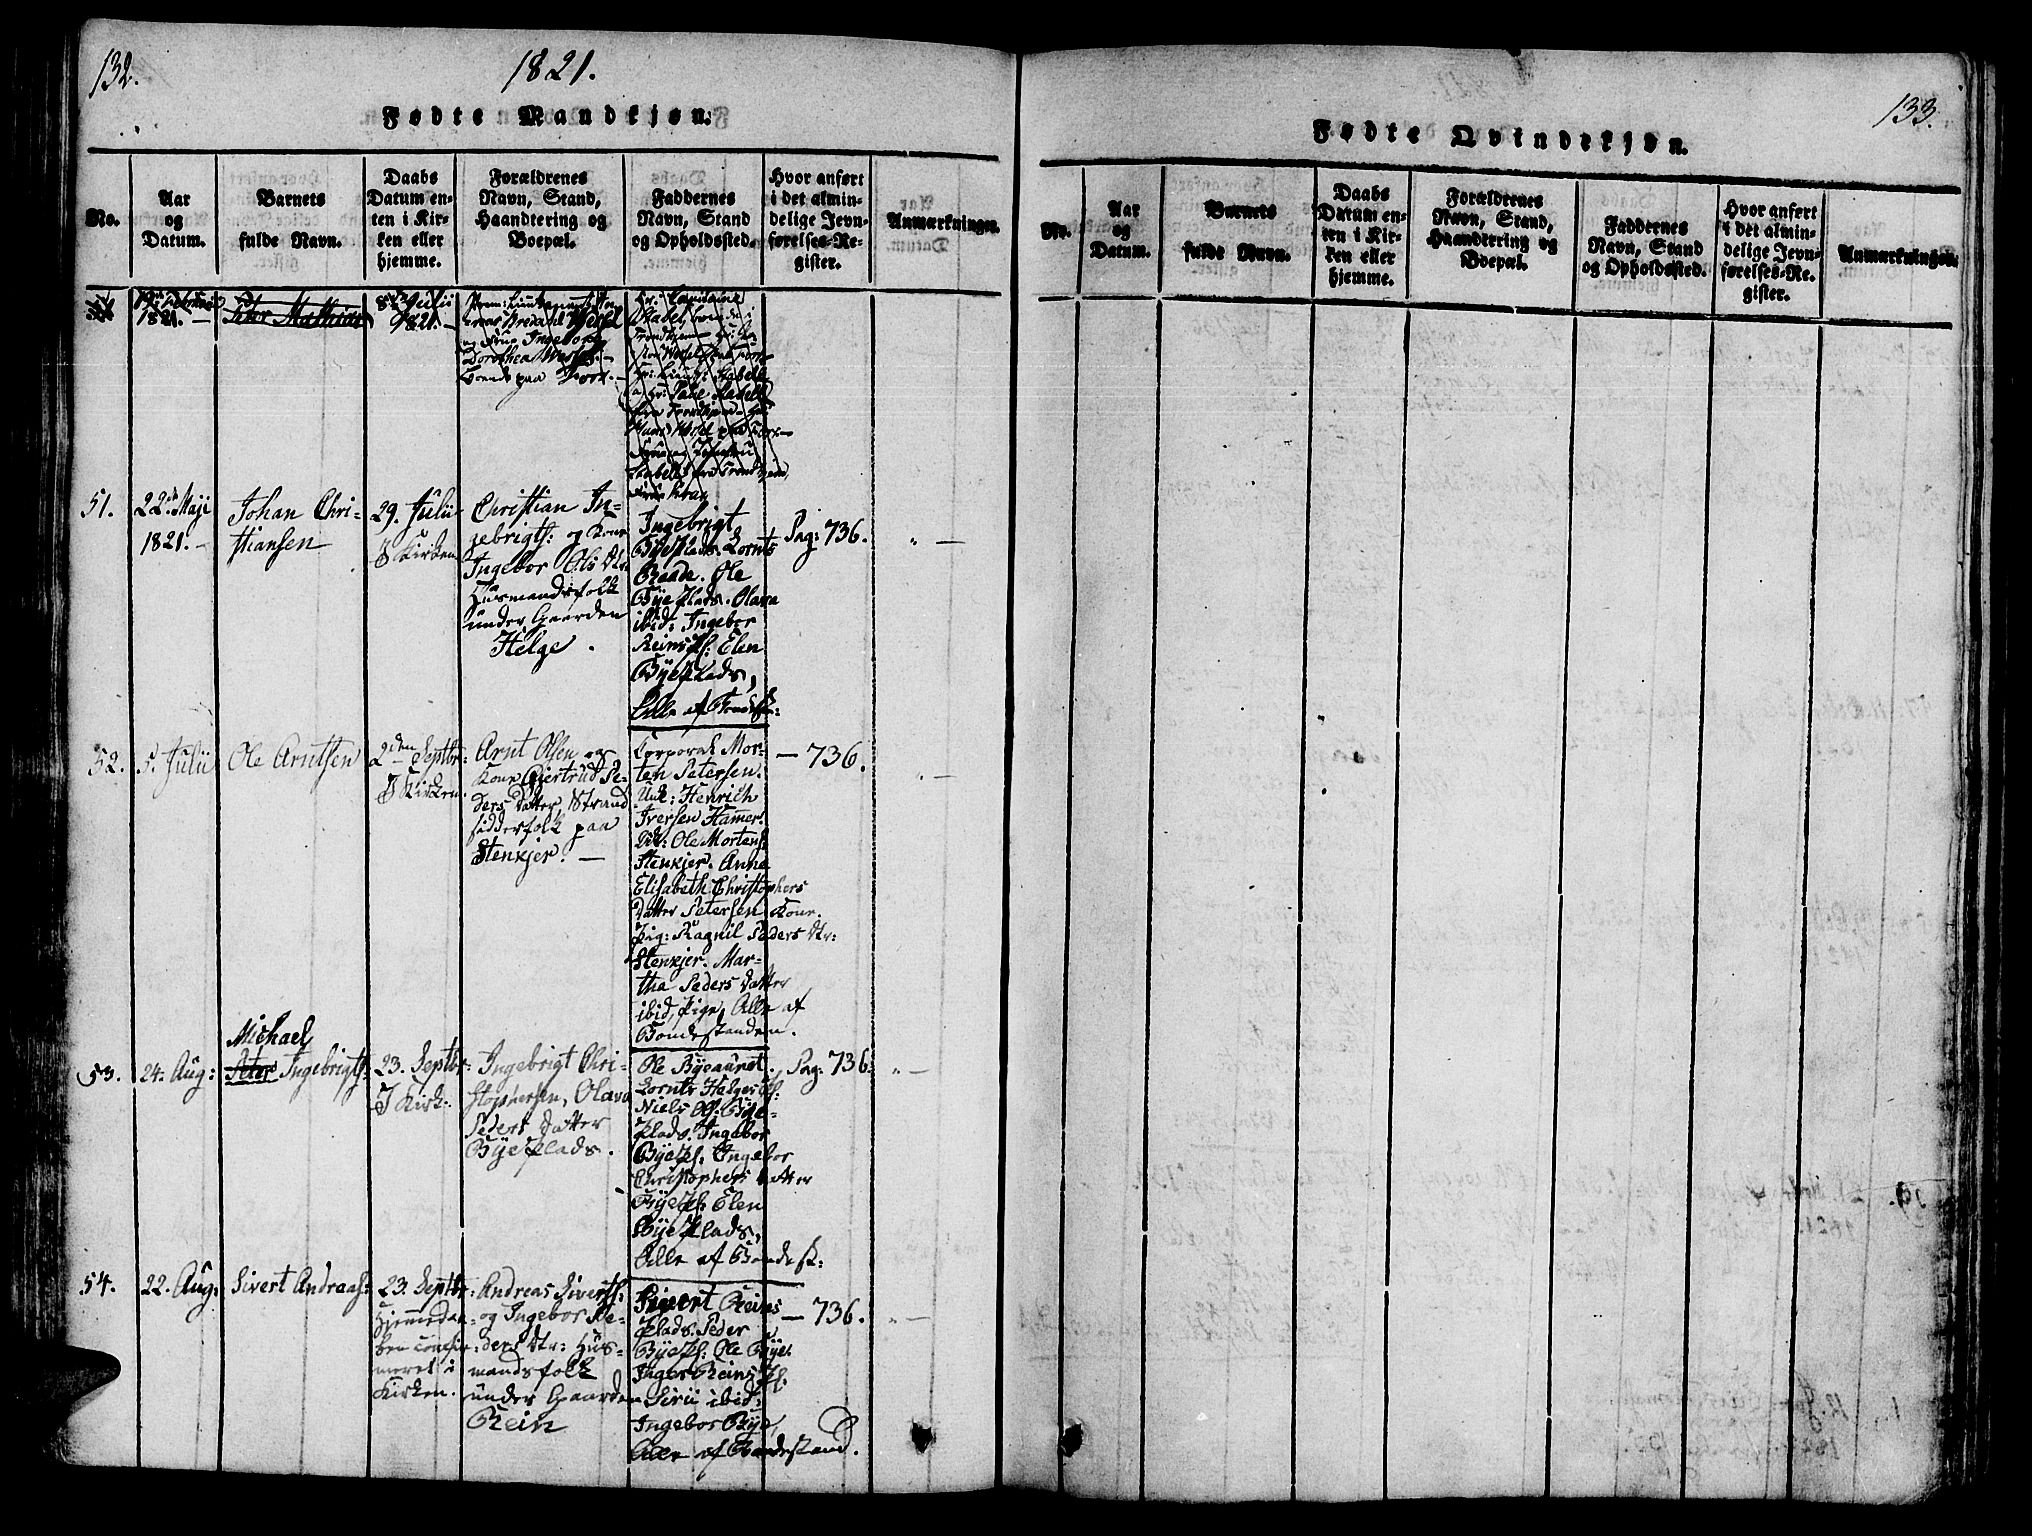 132.
1821.
Fødte Mandkjøn.
No.
Aar
og
Datum.
Barnets
fulde Navn.
Daabs
Datum en-
ten i Kir-
ken eller
hjemme.
Forældrenes
Navn, Stand,
Haandtering og
Boepæl.
Faddernes
Navn, Stand
og Opholdssted.
Hvor anført
i det almin-
delige Jevn-
førelses-Re-
gister.
Anmærkninger.
1821. —
Peter Mathias
8de Julii
1821. —
Bredahl Wessel
og Frue Ingebor
Dorothea Wessel. —
Boende paa
51.
22de Maji
1821. —
Johan Chri-
stiansen
29. Julii
I Kirken
Christian In-
gebrigts: og Kone
Ingebor Ols Dtr.
Huusmandsfolk
under Gaarden
Helge.
Ingebrigt
Byeplads. Lornts
Raade. Ole
Byeplads. Olava
ibid: Ingebor
Reinspl: Elen
Byeplads,
Alle af Bondest:
Pag: 736.
" —
52.
5. Julii
Ole Arntsen
2den Septbr:
I Kirken.
Arnt Olsen og
Kone Gjertrud Pe-
ders Datter, Strand
sidderfolk paa
Stenkjer. —
Corporal Mor-
ten Petersen.
Unk: Henrich
Iversen Hamer.
Dit: Ole Mortens:
Stenkjer. Anne
Elisabeth Christophers
Datter Petersen Kone.
Pig: Ragnil Peders Dtr:
Stenkjer. Mar-
tha Peders Datter
ibid, Pige, Alle af
Bondestanden.
— 736.
" —
53.
24. Aug:
Michael
Peter Ingebrigts:
23. Septbr:
I Kirk:
Ingebrigt Chri-
stophersen, Olava
Peders Datter
Byeplads.
Ole Byeaunet.
Lornts Helges pl:
Niels Bye-
plads. Ingebor
Byepl. Ingebor
Christophers Datter
Byepl: Elen
Byeplads,
Alle af Bondest:
Pag: 736:
" —
54.
22. Aug:
Sivert Andreas:
23. Septbr:
Hjemmedaa-
ben confir-
meret i
Kirken.
Andreas Siverts:
og Ingebor Pe-
ders Dtr: Hus-
mandsfolk
under Gaarden
Rein
Sivert Reins
plads. Peder
Byepl: Ole Bye.
Inger Reins pl.
Siri ibid:
Ingebor Bye,
Alle af Bondestand.
— 736.
" —
133.
Fødte Qvindekjøn.
No.
Aar
og
Datum.
Barnets
fulde Navn.
Daabs
Datum en-
ten i Kir-
ken eller
hjemme.
Forældrenes
Navn, Stand,
Haandtering og
Boepæl.
Faddernes
Navn, Stand
og Opholdssted.
Hvor anført
i det almin-
delige Jevn-
førelses-Re-
gister.
Anmærkninger.